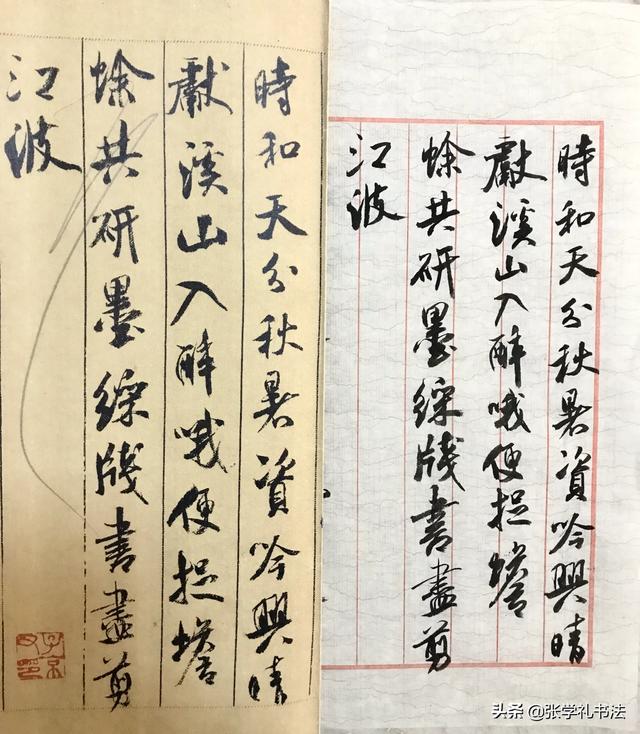 時和天分秋暑資吟興晴
獻溪山入醉哦便捉蟾
蜍共研墨綵牋書盡剪
江波
子京父印
時和天分秋暑資吟興晴
獻溪山入醉哦便捉蟾
蜍共研墨綵牋書盡剪
江波
头条 @张学礼书法